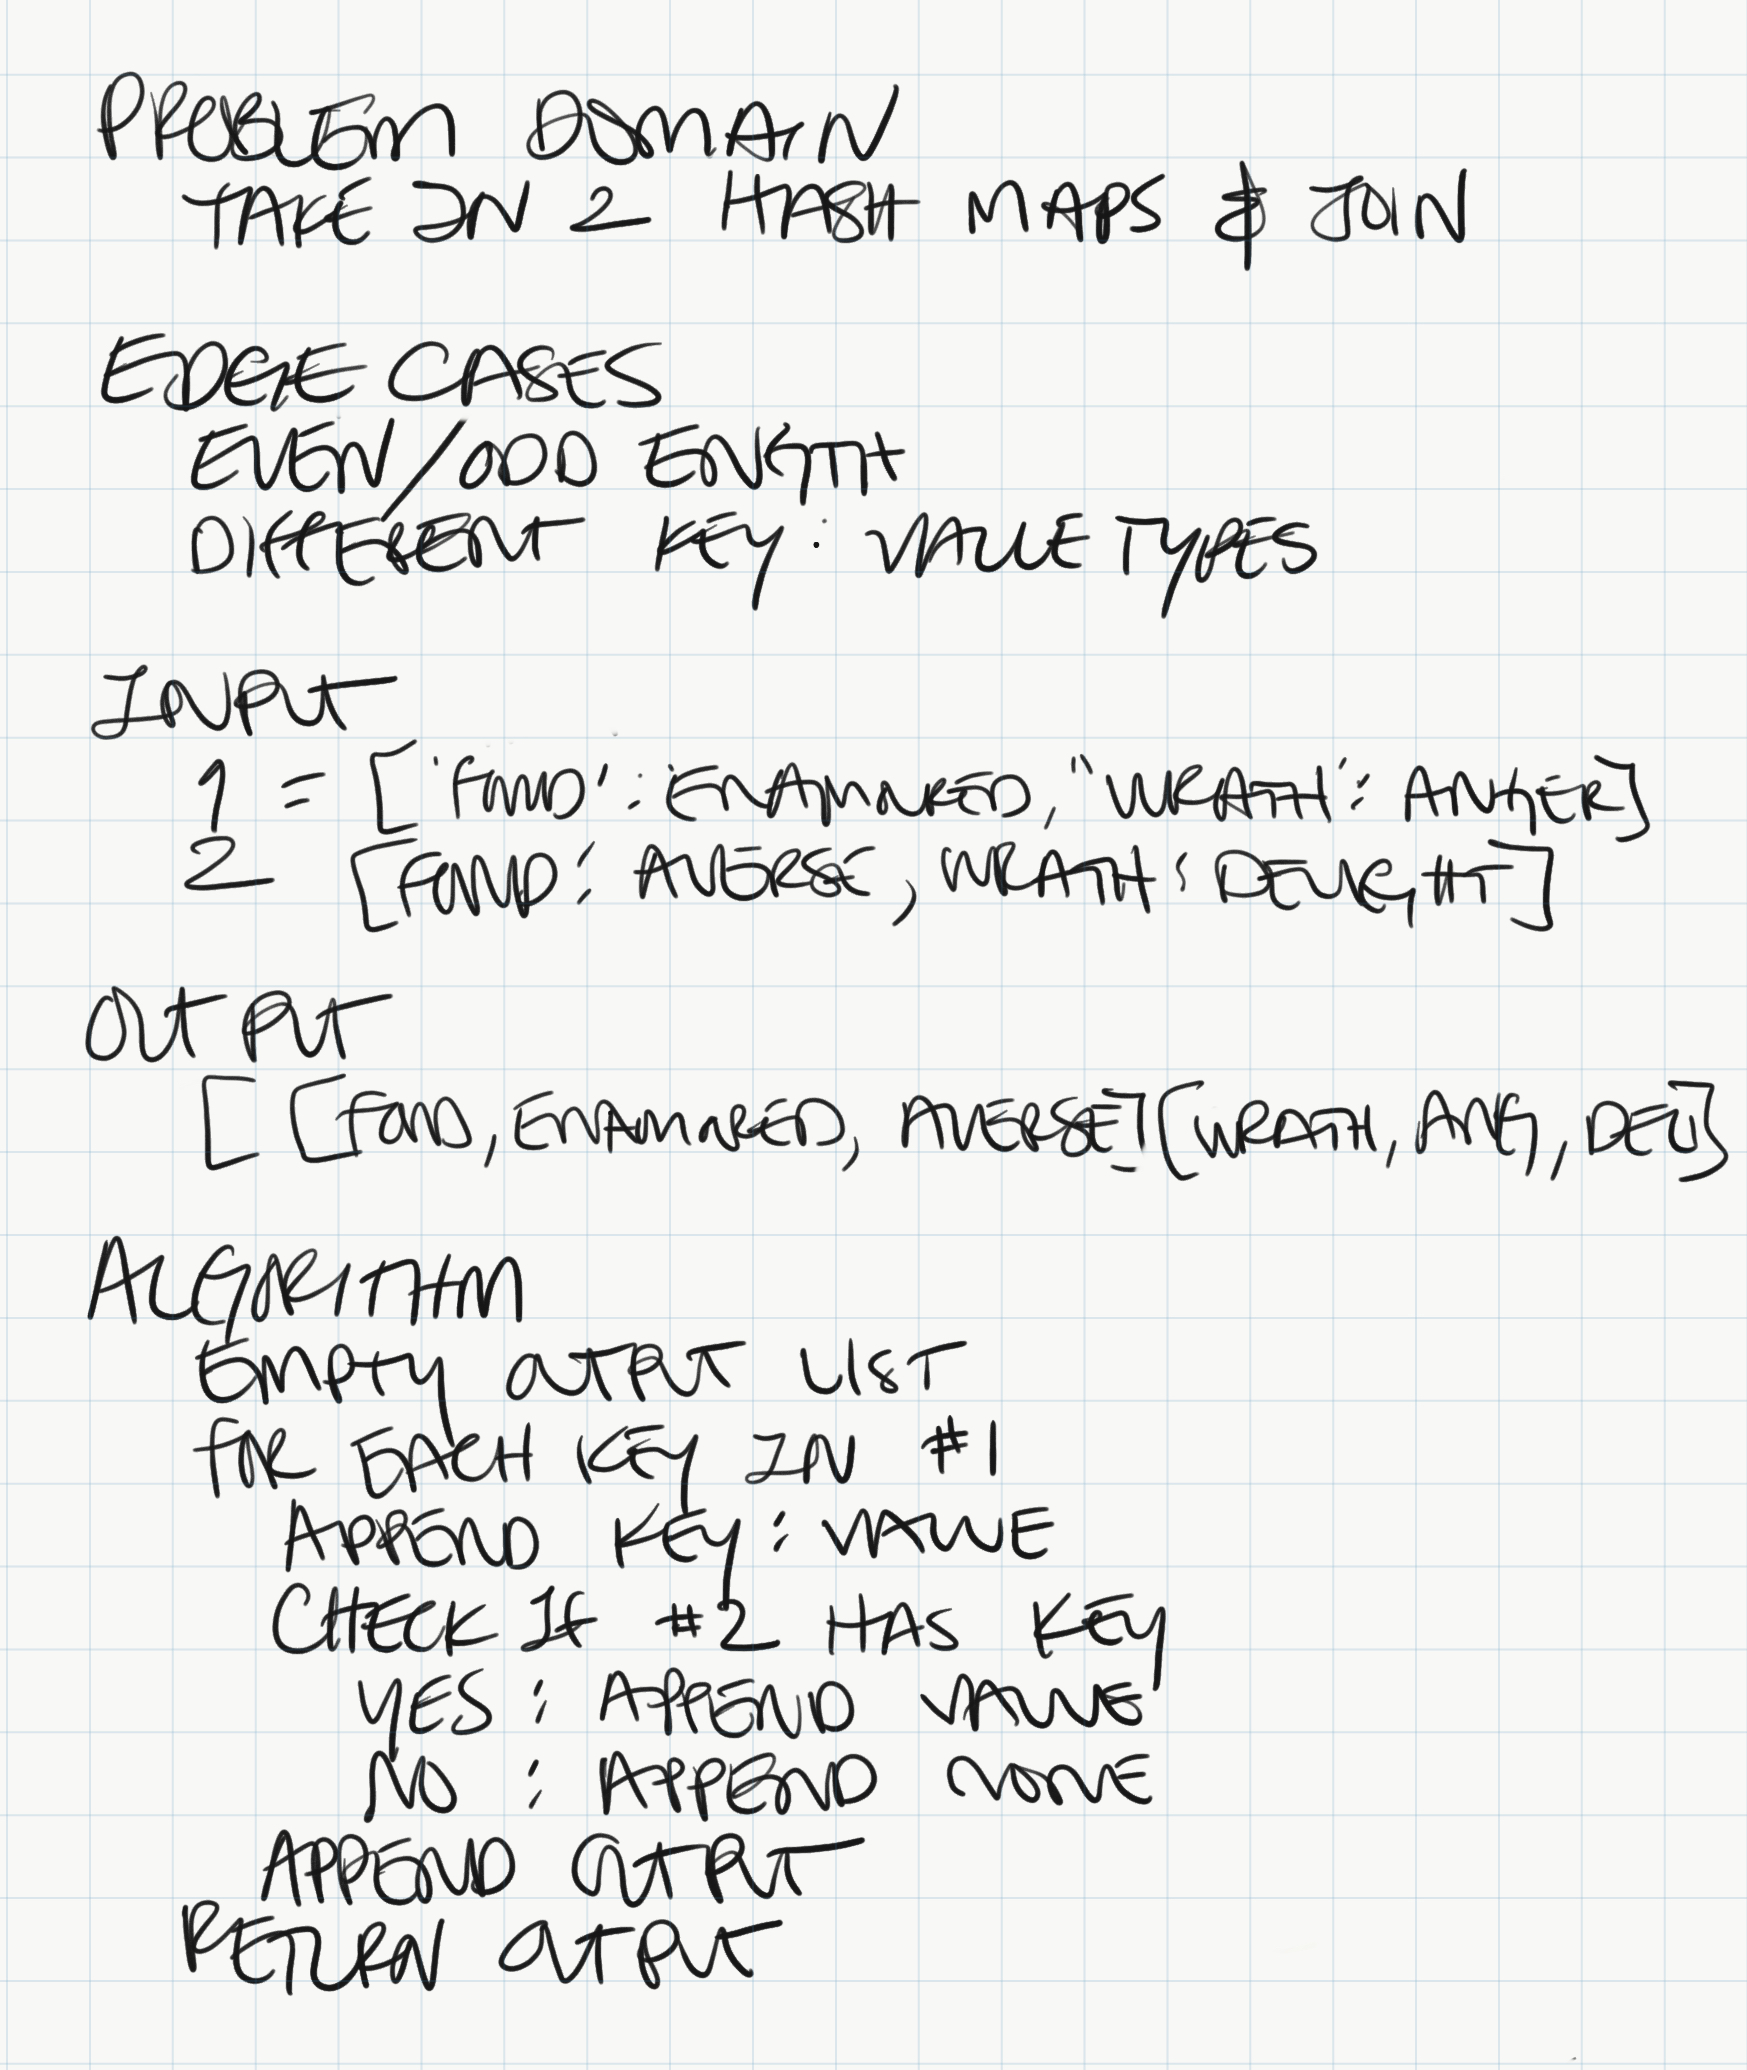 PROBLEM DOMAIN
TAKE IN 2 HASH MAPS & JOIN
EDGE CASES
EVEN/ODD ENGTH
DIFFERENT KEY : VALUE TYPES
INPUT
1 = ['FOND' : ENAMORED, "WRATH' : ANGER]
2 [FOND : AVERSE, WRATH : DELIGHT]
OUTPUT
[ [FOND, ENAMORED, AVERSE] [WRATH, ANG, DEL]
ALGORITHM
EMPTY OUTPUT LIST
FOR EACH KEY IN #1
APPEND KEY : VALUE
CHECK IF #2 HAS KEY
YES : APPEND VALUE
NO : APPEND NONE
APPEND OUTPUT
RETURN OUTPUT